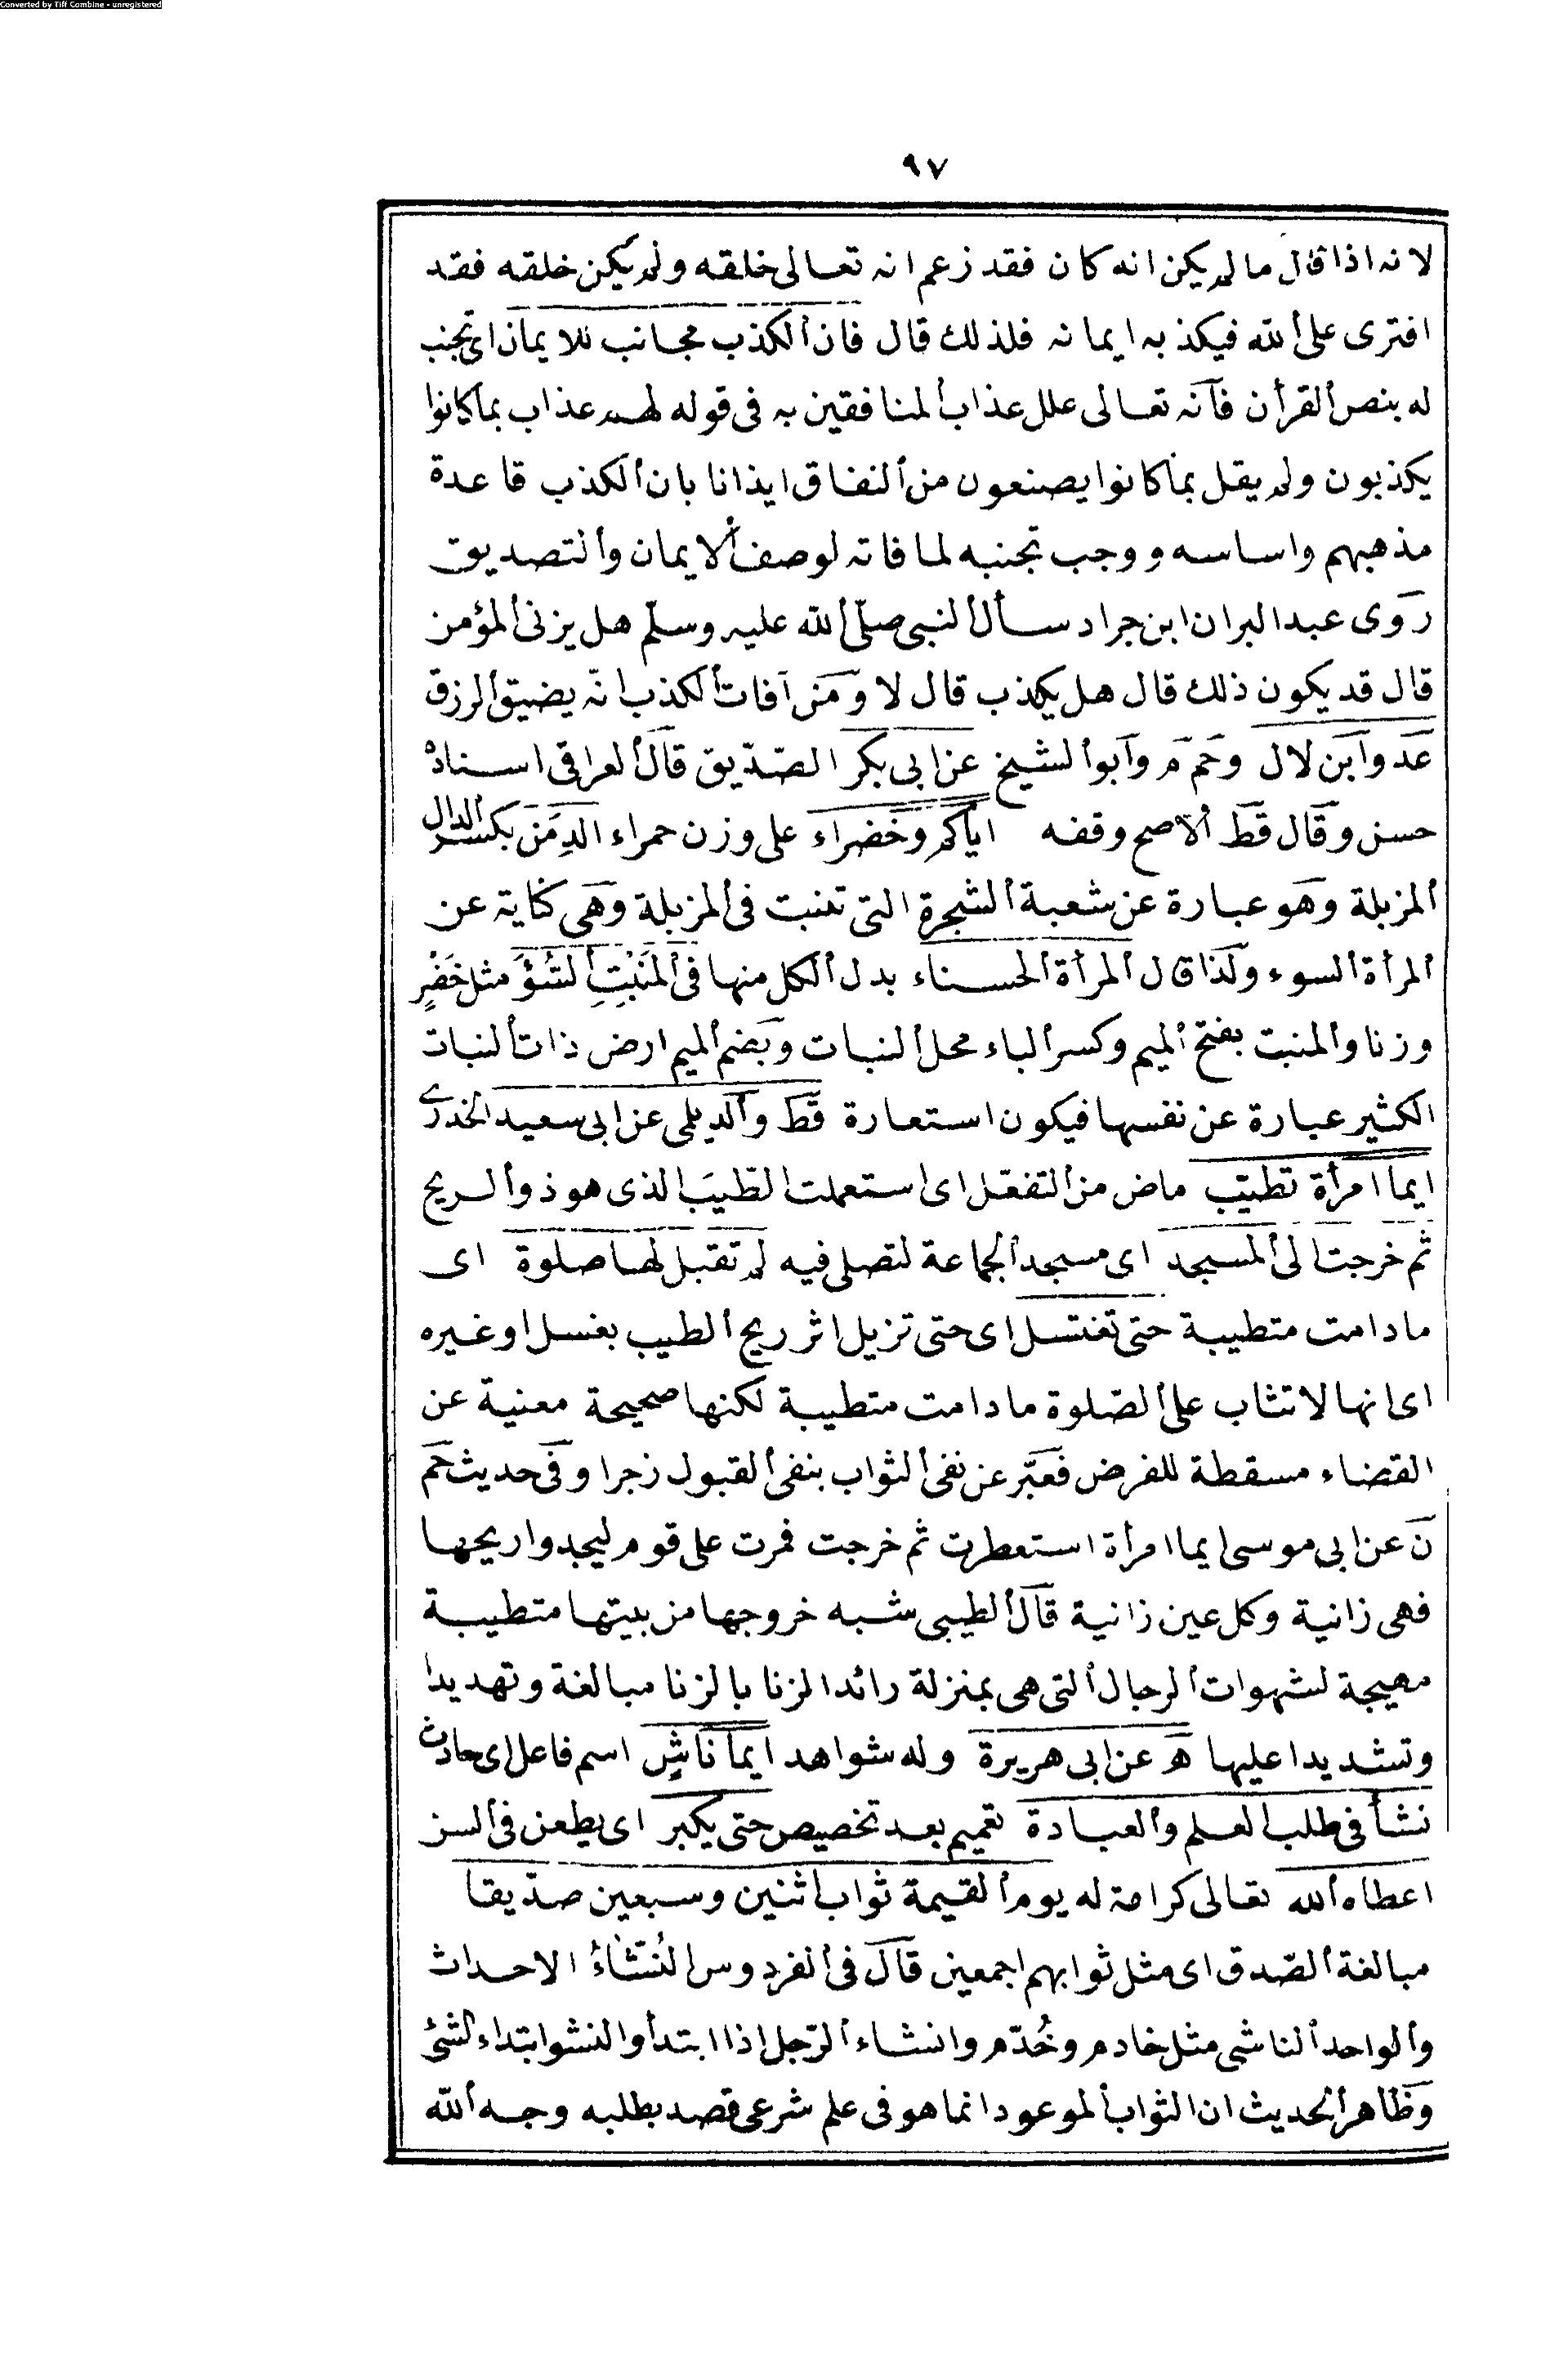 Converted by Tiff Combine - unregistered
٩٧
لانه اذا قال ما لم يكن انه كان فقد زعم انه تعالى خلقه ولم يكن خلقه فقد
افترى على الله فيكذب به ايمانه فلذلك قال فان الكذب مجانب للايمان اى تجنب
له بنص القرأن فانه تعالى علل عذاب المنافقين به فى قوله لهم عذاب بما كانوا
يكذبون ولم يقل بما كانوا يصنعون من النفاق ايذانا بان الكذب قاعدة
مذهبهم واساسه ووجب تجنبه لما فاته لوصف الايمان والتصديق
روى عبد البر ان ابن جراد سأل النبى صلى الله عليه وسلم هل يزنى المؤمن
قال قد يكون ذلك قال هل يكذب قال لا ومن آفات الكذب انه يضيق الرزق
عد وابن لال وحم م وابو الشيخ عن ابى بكر الصديق قال العراقى اسناده
حسن وقال قط الاصح وقفه اياكم وخضراء على وزن حمراء الدِمَن بكسر الدال
المزبلة وهو عبارة عن شعبة الشجرة التى تنبت فى المزبلة وهى كناية عن
المرأة السوء ولذا قال المرأة الحسناء بدل الكل منها فى المَنْبِتِ السُوْءَ مثل خَضْرٍ
وزنا والمنبت بفتح الميم وكسر الباء محل النبات وبضم الميم ارض ذات النبات
الكثير عبارة عن نفسها فيكون استعارة قط والديلمى عن ابى سعيد الخدرى
ايما امرأة تطيب ماض من التفعل اى استعملت الطيب الذى هو ذو الريح
ثم خرجت الى المسجد اى مسجد الجماعة لتصلى فيه لم تقبل لها صلوة اى
ما دامت متطيبة حتى تغتسل اى حتى تزيل اثر ريح الطيب بغسل او غيره
اى انها لا تثاب على الصلوة ما دامت متطيبة لكنها صحيحة مغنية عن
القضاء مسقطة للفرض فعبر عن نفى الثواب بنفى القبول زجرا وفى حديث حم
ن عن ابى موسى ايما امرأة استعطرت ثم خرجت فمرت على قوم ليجدوا ريحها
فهى زانية وكل عين زانية قال الطيبى شبه خروجها من بيتها متطيبة
مهيجة لشهوات الرجال التى هى بمنزلة رائد الزنا بالزنا مبالغة وتهديدا
وتشديدا عليها هـ عن ابى هريرة وله شواهد ايما ناشٍ اسم فاعل اى حادث
نشأ فى طلب العلم والعبادة تعميم بعد تخصيص حتى يكبر اى يطعن فى السن
اعطاه الله تعالى كرامة له يوم القيمة ثواب اثنين وسبعين صدّيقا
مبالغة الصدق اى مثل ثوابهم اجمعين قال فى الفردوس النُشّاءُ الاحداث
والواحد الناشى مثل خادم وخُدّم وانشاء الرجل اذا ابتدأ والنشو ابتداء الشئ
وظاهر الحديث ان الثواب الموعود انما هو فى علم شرعى قصد بطلبه وجه الله